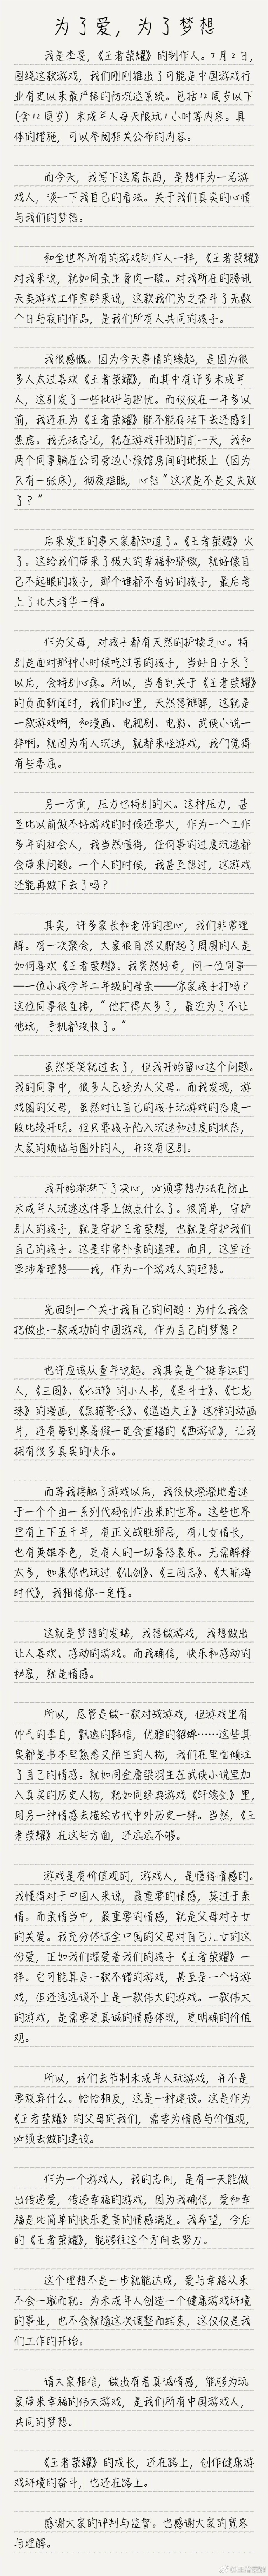 为了爱，为了梦想
我是李旻，《王者荣耀》的制作人。7月2日，
围绕这款游戏，我们刚刚推出了可能是中国游戏行
业有史以来最严格的防沉迷系统。包括12周岁以下
(含12周岁）未成年人每天限玩1小时等内容。具
体的措施，可以参阅相关公布的内容。
而今天，我写下这篇东西，是想作为一名游
戏人，谈一下我自己的看法。关于我们真实的心情
与我们的梦想。
和全世界所有的游戏制作人一样，《王者荣耀》
对我来说，就如同亲生骨肉一般。对我所在的腾讯
天美游戏工作室群来说，这款我们为之奋斗了无数
个日与夜的作品，是我们所有人共同的孩子。
我很感慨。因为今天事情的缘起，是因为很
多人太过喜欢《王者荣耀》，而其中有许多未成年
人，这引发了一些批评与担忧。而仅仅在一年多以
前，我还在为《王者荣耀》能不能存活下去还感到
焦虑。我无法忘记，就在游戏开测的前一天，我和
两个同事躺在公司旁边小旅馆房间的地板上（因为
只有一张床），彻夜难眠，心想“这次是不是又失败
了？”
后来发生的事大家都知道了。《王者荣耀》火
了。这给我们带来了极大的幸福和骄傲，就好像自
己不起眼的孩子，那个谁都不看好的孩子，最后考
上了北大清华一样。
作为父母，对孩子都有天然的护犊之心。特
别是面对那种小时候吃过苦的孩子，当好日子来了
以后，会特别心疼。所以，当看到关于《王者荣耀》
的负面新闻时，我们的心里，天然想辩解，这就是
一款游戏啊，和漫画、电视剧、电影、武侠小说一
样啊。就因为有人沉迷，就都来怪游戏，我们觉得
有些委屈。
另一方面，压力也特别的大。这种压力，甚
至比以前做不好游戏的时候还要大，作为一个工作
多年的社会人，我当然懂得，任何事的过度沉迷都
会带来问题。一个人的时候，我甚至想过，这游戏
还能再做下去了吗？
其实，许多家长和老师的担心，我们非常理
解。有一次聚会，大家很自然又聊起了周围的人是
如何喜欢《王者荣耀》。我突然好奇，问一位同事—
—一位小孩今年二年级的母亲——你家孩子打吗？
这位同事很直接，“他打得太多了，最近为了不让
他玩，手机都没收了。”
虽然笑笑就过去了，但我开始留心这个问题。
我的同事中，很多人已经为人父母。而我发现，游
戏圈的父母，虽然对让自己的孩子玩游戏的态度一
般比较开明。但只要孩子陷入沉迷和过度的状态，
大家的烦恼与圈外的人，并没有区别。
我开始渐渐下了决心，必须要想办法在防止
未成年人沉迷这件事上做点什么了。很简单，守护
别人的孩子，就是守护王者荣耀，也就是守护我们
自己的孩子。这是非常朴素的道理。而且，这里还
牵涉着理想——我，作为一个游戏人的理想。
先回到一个关于我自己的问题：为什么我会
把做出一款成功的中国游戏，作为自己的梦想？
也许应该从童年说起。我其实是个挺幸运的
人，《三国》、《水浒》的小人书，《圣斗士》、《七龙
珠》的漫画，《黑猫警长》、《邋遢大王》这样的动画
片，还有每到寒暑假一定会重播的《西游记》，让我
拥有很多真实的快乐。
而等我接触了游戏以后，我很快深深地着迷
于一个个由一系列代码创作出来的世界。这些世界
里有上下五千年，有正义战胜邪恶，有儿女情长，
也有英雄本色，更有人的一切喜怒哀乐。无需解释
太多，如果你也玩过《仙剑》、《三国志》、《大航海
时代》，我相信你一定懂。
这就是梦想的发端，我想做游戏，我想做出
让人喜欢、感动的游戏。而我确信，快乐和感动的
秘密，就是情感。
所以，尽管是做一款对战游戏，但游戏里有
帅气的李白，飘逸的韩信，优雅的貂蝉……这些其
实都是书本里熟悉又陌生的人物，我们在里面倾注
了自己的情感。就如同金庸梁羽生在武侠小说里加
入真实的历史人物，就如同经典游戏《轩辕剑》里，
用另一种情感去描绘古代中外历史一样。当然，《王
者荣耀》在这些方面，还远远不够。
游戏是有价值观的，游戏人，是懂得情感的。
我懂得对于中国人来说，最重要的情感，莫过于亲
情。而亲情当中，最重要的情感，就是父母对子女
的关爱。我充分体谅全中国的父母对自己儿女的这
份爱，正如我们深爱着我们的孩子《王者荣耀》一
样。它可能算是一款不错的游戏，甚至是一个好游
戏，但还远远谈不上是一款伟大的游戏。一款伟大
的游戏，是需要更真诚的情感体现，更明确的价值
观。
所以，我们去节制未成年人玩游戏，并不是
要放弃什么。恰恰相反，这是一种建设。这是作为
《王者荣耀》的父母的我们，需要为情感与价值观，
必须去做的建设。
作为一个游戏人，我的志向，是有一天能做
出传递爱，传递幸福的游戏，因为我确信，爱和幸
福是比简单的快乐更高的情感满足。我希望，今后
的《王者荣耀》，能够往这个方向去努力。
这个理想不是一步就能达成，爱与幸福从来
不会一蹴而就。为未成年人创造一个健康游戏环境
的事业，也不会就随这次调整而结束，这仅仅是我
们工作的开始。
请大家相信，做出有着真诚情感，能够为玩
家带来幸福的伟大游戏，是我们所有中国游戏人，
共同的梦想。
《王者荣耀》的成长，还在路上，创作健康游
戏环境的奋斗，也还在路上。
感谢大家的评判与监督。也感谢大家的宽容
与理解。
@王者荣耀